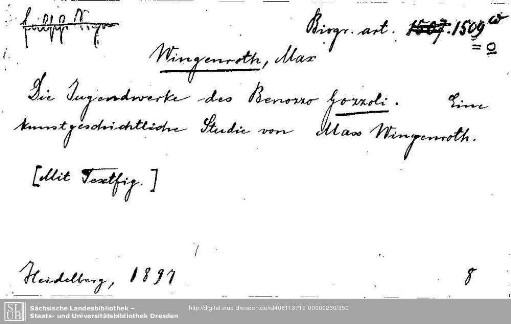 Biogr. art. 1507. 1509
Wingenroth, Max
Die Jugendwerke des Benozzo Gozzoli. Eine
kunstgeschichtliche Studie von Max Wingenroth.
[Mit Textfig.]
Heidelberg, 1897 8
SLUB
Sächsische Landesbibliothek –
Staats- und Universitätsbibliothek Dresden